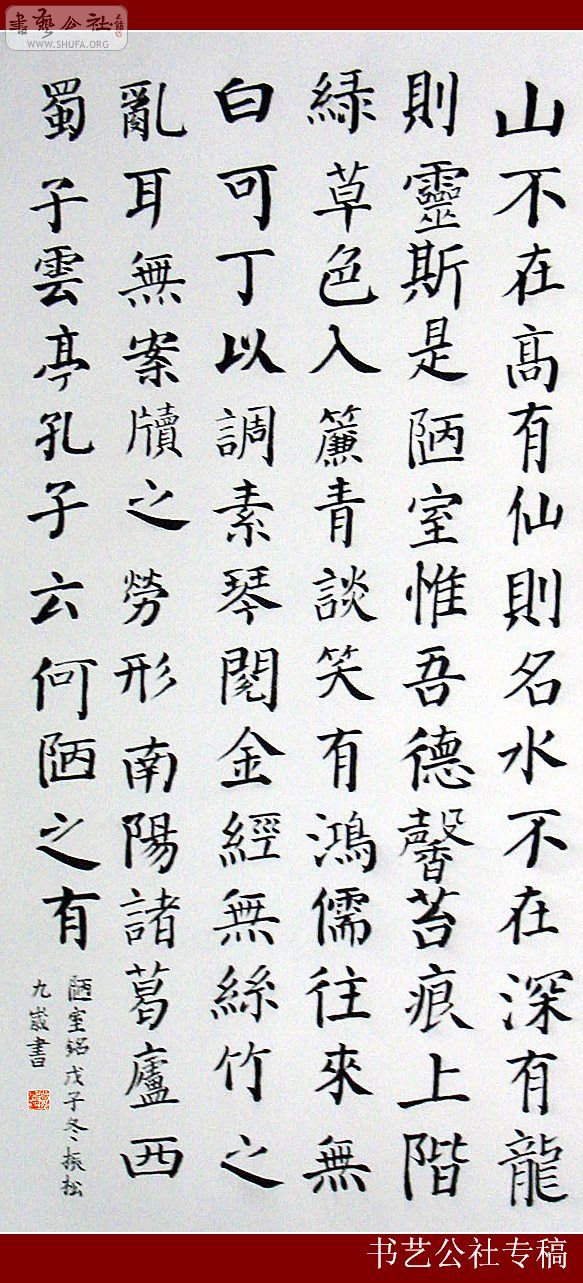 書藝公社
WWW.SHUFA.ORG
山不在髙有仙則名水不在深有龍
則靈斯是陋室惟吾德馨苔痕上階
綠草色入簾青談笑有鴻儒往來無
白可丁以調素琴閱金經無絲竹之
亂耳無案牘之勞形南陽諸葛廬西
蜀子雲亭孔子云何陋之有
陋室銘戊子冬振松
九歲書
书艺公社专稿